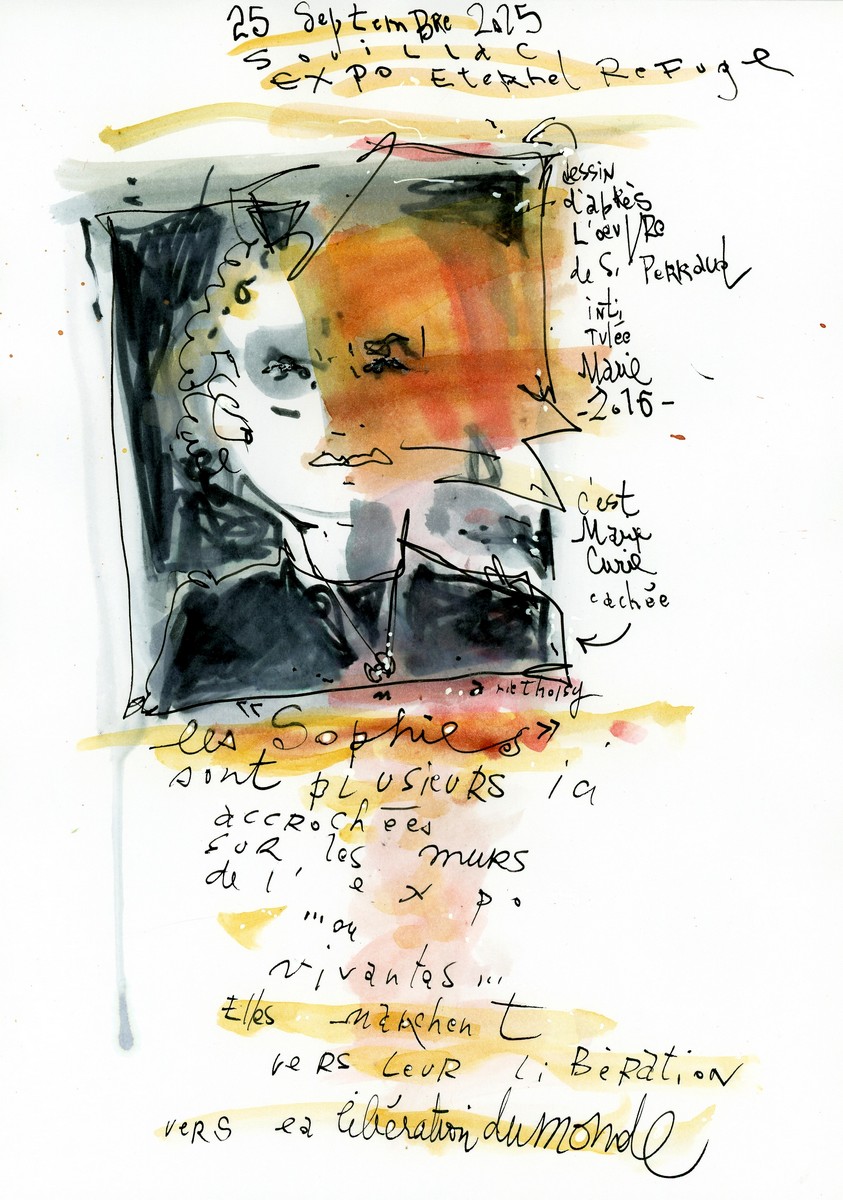 25 Septembre 2015
Souillac
EXPO Eternel Refuge
dessin
d'après
L'œuvre
de S. Perraud
inti
tulée
Marie
-2016-
c'est
Marie
Curie
cachée
les "Sophies"
sont plusieurs ici
accrochées
sur les murs
de l'expo
...ou
vivantes...
Elles marchent
vers leur libération
vers la libération du monde